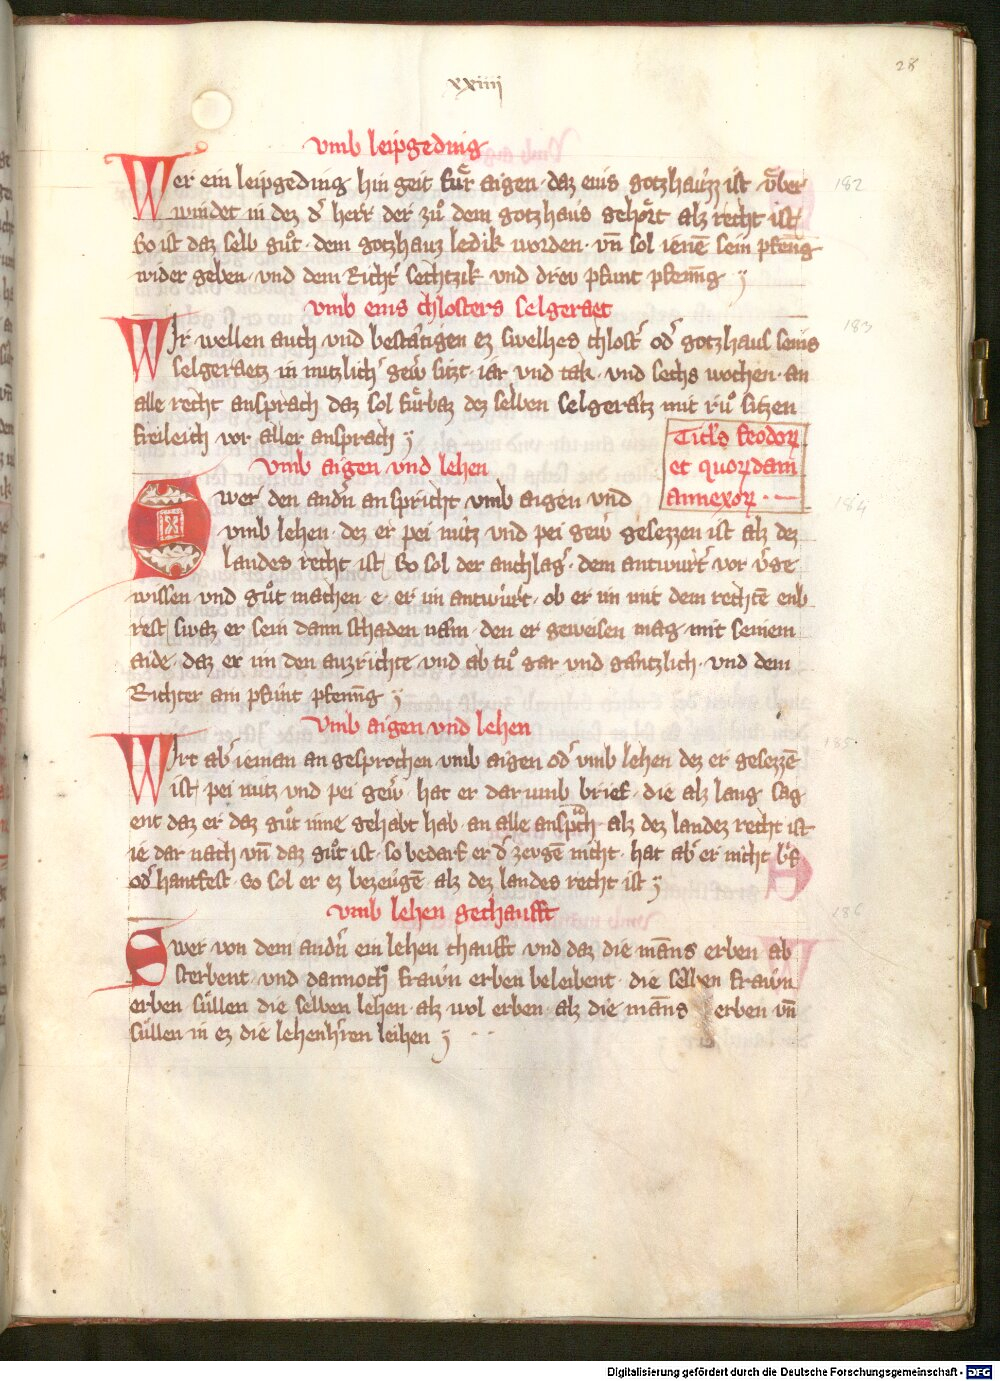 28
xxiiii
vmb leipgeding
Wer ein leipgeding hin geit fuͤr aigen · daz eins gotzhauzz ist · v̈ber
windet in dez d' herr der zuͦ dem gotzhaus gehoͤrt alz recht ist
So ist daz selb guͦt · dem gotzhauz ledik worden · vn̄ sol ienē sein pfen̄ig
wider geben · vnd dem Richt' sechtzik vnd drev pfunt pfenīg
182
vmb eins chlosters selgeraet
Wir wellen auch vnd bestaͤtigen ez swelhes chlost' od' gotzhaus seins
selgeraetz in nutzlich' gew̄ sitzt · iar vnd tak · vnd sechs wochen · an
alle recht ansprach daz sol fuͤrbaz dez selben selgeraͤtz mit ruͦ sitzen
freileich vor aller ansprach
183
Titl's feodoꝝ
et quoꝝdam
annexoꝝ · —
vmb aigen vnd lehen
Swer den and'n anspricht vmb aigen vnd
vmb lehen · dez er pei nutz vnd pei gew̄ gesezzen ist alz dez
landes recht ist So sol der anchlag' · dem antwurt' vor v'ge
wissen vnd guͦt machen · e · er im antwurt · ob er im mit dem rechtē enb
rest swaz er sein dann schaden naͤm · den er geweisen mag · mit seinem
aide · daz er im den auzrichte · vnd ab tuͦ gar vnd gaͤntzlich · vnd dem
Richter am pfunt pfenīg
184
vmb aigen vnd lehen
Wirt ab' ieman angesprochen vmb aigen od' vmb lehen dez er gesezzē
ist pei nutz vnd pei gew̄ · hat er darumb brief · die alz lang sag
ent daz er daz guͦt inne gehabt hab · an alle ansprͣch alz dez landez recht ist
ie dar nach vn̄ daz guͦt ist · so bedarf er d' zevgē nicht · hat ab' er nicht b'f
od' hantfest · So sol er ez bezeugen · alz dez landes recht ist
185
vmb lehen gechaufft
Swer von dem and'n ein lehen chaufft vnd daz die māns erben ab
sterbent · vnd dannoch frawn erben beleibent · die selben frawn
erben suͤllen die selben lehen · alz wol erben alz die māns erben vn̄
suͤllen in ez die lehenh'ren leihen
186
Digitalisierung gefördert durch die Deutsche Forschungsgemeinschaft · DFG